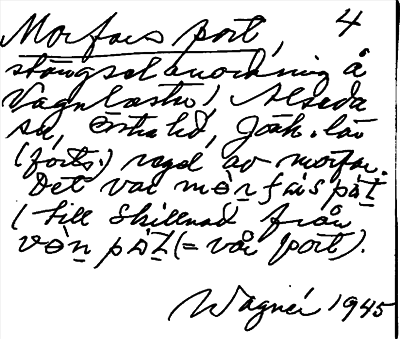 4
Morfars port,
stängselanordning å
Vagnlästu, Alseda
sn, Östra hd, Jönk. län
(forts.) vägd av morfar.
Det var mòrfars pà̱t
(till skillnad från
vòn pà̱t (= vår port).
Wagnér 1945